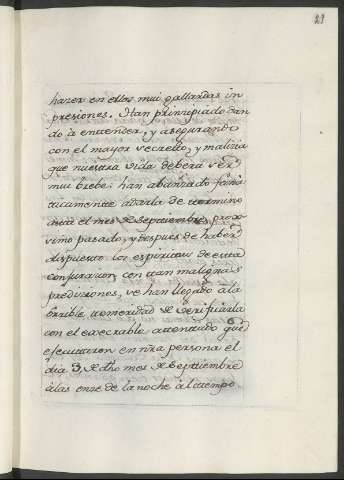 23
hazer en ellas mui gallardas in
presiones. Han prinzipiado dan
do à entender, y asegurando
con el mayor secretto, y malizia
que nuestra vida deberá ser
mui brebe: han abanzado faná
ticamente à darla de termino
asta el mes de Septtiembre proxi
simo pasado, y despues de haber
dispuesto los espiritus de esta
conjurazion, con ttan malignas
prediziones, se han llegado à la
orrible ttemeridad de verificarla
con el execrable attentado que
ejecuttaron en nr̃a persona el
dia 3, de dho mes de Septtiembre
à las onze de la noche al ttiempo